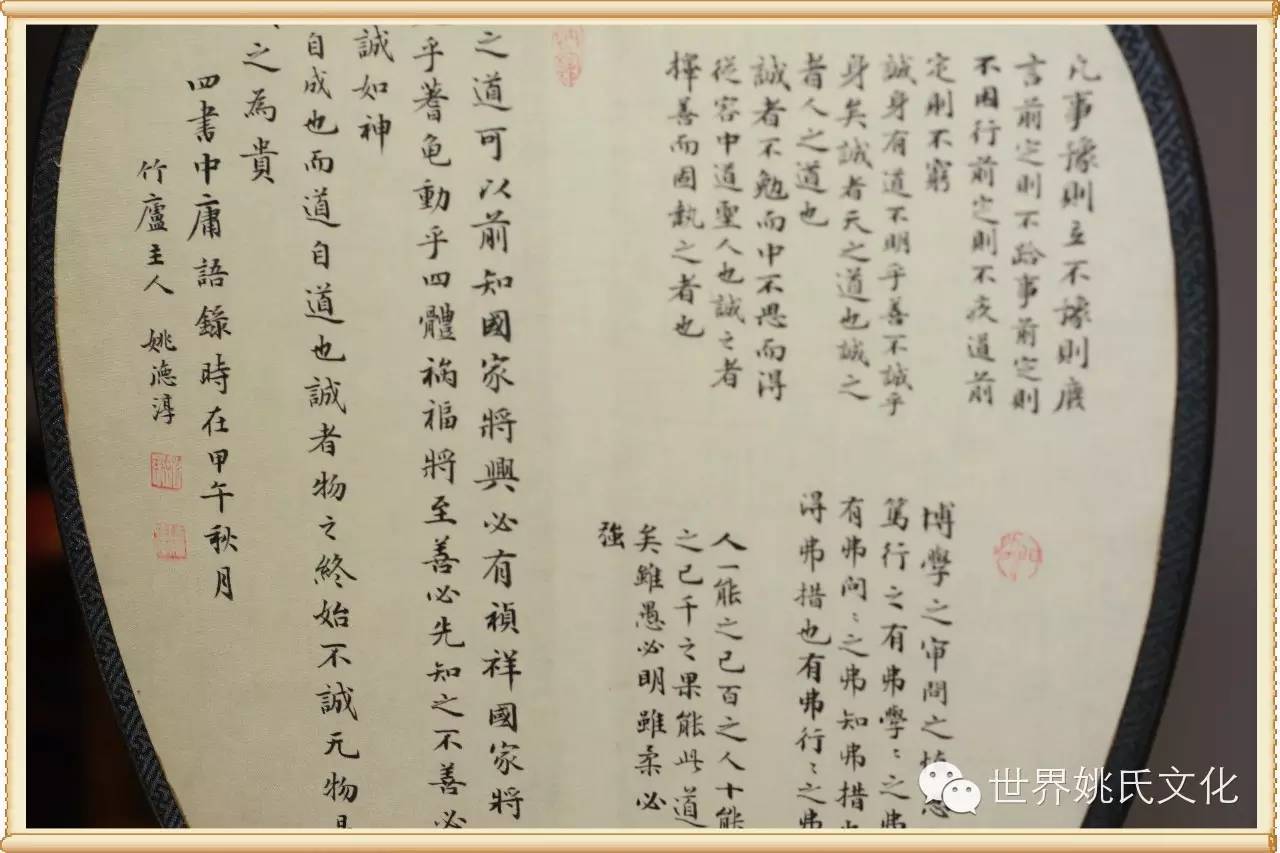 凡事豫則立不豫則廢
言前定則不跲事前定則
不困行前定則不疚道前
定則不窮
誠身有道不明乎善不誠乎
身矣誠者天之道也誠之
者人之道也
誠者不勉而中不思而得
從容中道聖人也誠之者
擇善而固執之者也
博學之审問之
篤行之有弗學〻之弗
有弗問〻之弗知弗措
得弗措也有弗行〻之弗
人一能之己百之人十能
之己千之果能此道
矣雖愚必明雖柔必
強
之道可以前知國家將興必有禎祥國家將
乎蓍龜動乎四體禍福將至善必先知之不善必
誠如神
自成也而道自道也誠者物之終始不誠无物
之為貴
四書中庸語錄時在甲午秋月
竹廬主人 姚德淳
世界姚氏文化